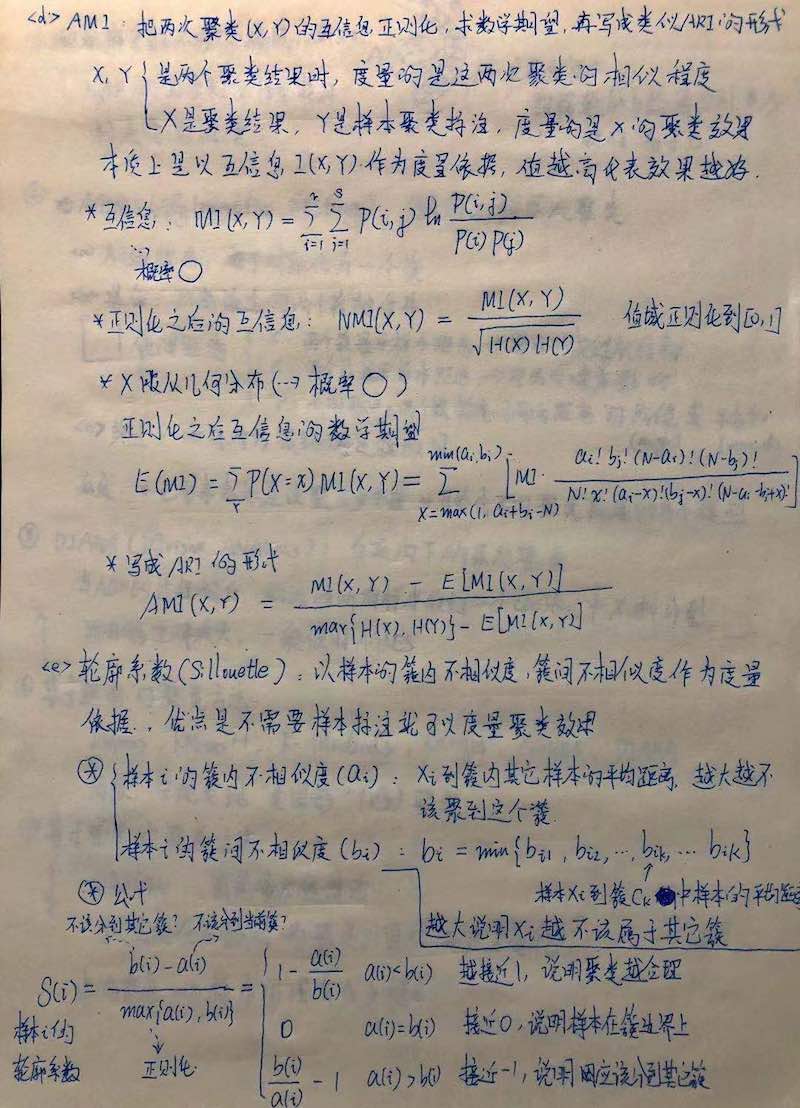 <d> AMI: 把两次聚类(X,Y)的互信息正则化,求数学期望,再写成类似ARI的形式
X,Y { 是两个聚类结果时,度量的是这两次聚类的相似程度
X是聚类结果,Y是样本聚类标注,度量的是X的聚类效果
本质上是以互信息I(X,Y)作为度量依据,值越高代表效果越好.
*互信息: MI(X,Y) = Σ_{i=1}^{r} Σ_{j=1}^{s} P(i,j) ln P(i,j) / P(i)P(j)
概率○
*正则化之后的互信息: NMI(X,Y) = MI(X,Y) / √H(X)H(Y) 值域正则化到[0,1]
* X服从几何分布(→概率○)
正则化之后互信息的数学期望
E(MI) = Σ_x P(X=x) MI(X,Y) = Σ_{X=max(1, ai+bi-N)}^{min(ai,bi)} [MI· ai! bj! (N-ai)! (N-bj)! / N! x! (ai-x)! (bj-x)! (N-ai-bj+x)!]
*写成ARI的形式
AMI(X,Y) = MI(X,Y) - E[MI(X,Y)] / max{H(X), H(Y)} - E[MI(X,Y)]
<e> 轮廓系数(Sillouette): 以样本的簇内不相似度,簇间不相似度作为度量
依据., 优点是不需要样本标注就可以度量聚类效果
⊛ { 样本i的簇内不相似度(ai): Xi到簇内其它样本的平均距离, 越大越不
该聚到这个簇.
样本i的簇间不相似度(bi): bi = min{bi1, bi2, …, bik, … biK}
样本Xi到簇Ck中样本的平均距离
越大说明Xi越不该属于其它簇
⊛ 公式
不该分到其它簇? 不该分到当前簇?
S(i) = b(i) - a(i) / max{a(i), b(i)} = { 1 - a(i)/b(i) a(i)<b(i) 越接近1, 说明聚类越合理
0 a(i)=b(i) 接近0, 说明样本在簇边界上
b(i)/a(i) - 1 a(i)>b(i) 接近-1, 说明应该分到其它簇
样本i的
轮廓系数
正则化